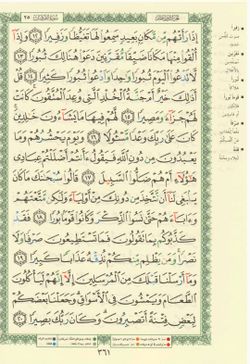 إِذَا رَأَتْهُم مِّن مَّكَانٍ بَعِيدٍ سَمِعُوا۟ لَهَا تَغَيُّظًا وَزَفِيرًا ۝١٢ وَإِذَآ
أُلْقُوا۟ مِنْهَا مَكَانًا ضَيِّقًا مُّقَرَّنِينَ دَعَوْا۟ هُنَالِكَ ثُبُورًا ۝١٣
لَّا تَدْعُوا۟ ٱلْيَوْمَ ثُبُورًا وَٰحِدًا وَٱدْعُوا۟ ثُبُورًا كَثِيرًا ۝١٤ قُلْ
أَذَٰلِكَ خَيْرٌ أَمْ جَنَّةُ ٱلْخُلْدِ ٱلَّتِى وُعِدَ ٱلْمُتَّقُونَ ۚ كَانَتْ
لَهُمْ جَزَآءً وَمَصِيرًا ۝١٥ لَّهُمْ فِيهَا مَا يَشَآءُونَ خَٰلِدِينَ ۚ
كَانَ عَلَىٰ رَبِّكَ وَعْدًا مَّسْـُٔولًا ۝١٦ وَيَوْمَ يَحْشُرُهُمْ وَمَا
يَعْبُدُونَ مِن دُونِ ٱللَّهِ فَيَقُولُ ءَأَنتُمْ أَضْلَلْتُمْ عِبَادِى
هَٰٓؤُلَآءِ أَمْ هُمْ ضَلُّوا۟ ٱلسَّبِيلَ ۝١٧ قَالُوا۟ سُبْحَٰنَكَ مَا كَانَ
يَنۢبَغِى لَنَآ أَن نَّتَّخِذَ مِن دُونِكَ مِنْ أَوْلِيَآءَ وَلَٰكِن مَّتَّعْتَهُمْ
وَءَابَآءَهُمْ حَتَّىٰ نَسُوا۟ ٱلذِّكْرَ وَكَانُوا۟ قَوْمًۢا بُورًا ۝١٨ فَقَدْ
كَذَّبُوكُم بِمَا تَقُولُونَ فَمَا تَسْتَطِيعُونَ صَرْفًا وَلَا
نَصْرًا ۚ وَمَن يَظْلِم مِّنكُمْ نُذِقْهُ عَذَابًا كَبِيرًا ۝١٩
وَمَآ أَرْسَلْنَا قَبْلَكَ مِنَ ٱلْمُرْسَلِينَ إِلَّآ إِنَّهُمْ لَيَأْكُلُونَ
ٱلطَّعَامَ وَيَمْشُونَ فِى ٱلْأَسْوَاقِ ۗ وَجَعَلْنَا بَعْضَكُمْ
لِبَعْضٍ فِتْنَةً أَتَصْبِرُونَ ۗ وَكَانَ رَبُّكَ بَصِيرًا ۝٢٠
٣٦١